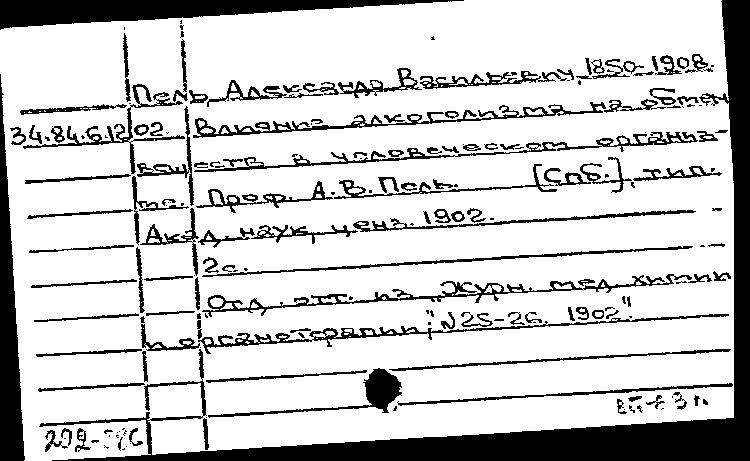 Пель, Александр Васильевич, 1850-1908.
34.84.6.12 02 Влияние алкоголизма на обмен
веществ в человеческом организ-
ме. Проф. А.В. Пель. [Спб.], тип.
Акад. наук, ценз. 1902.
2с.
"Отд. отт. из "Журн. мед. химии
и органотерапии", "№25-26. 1902".